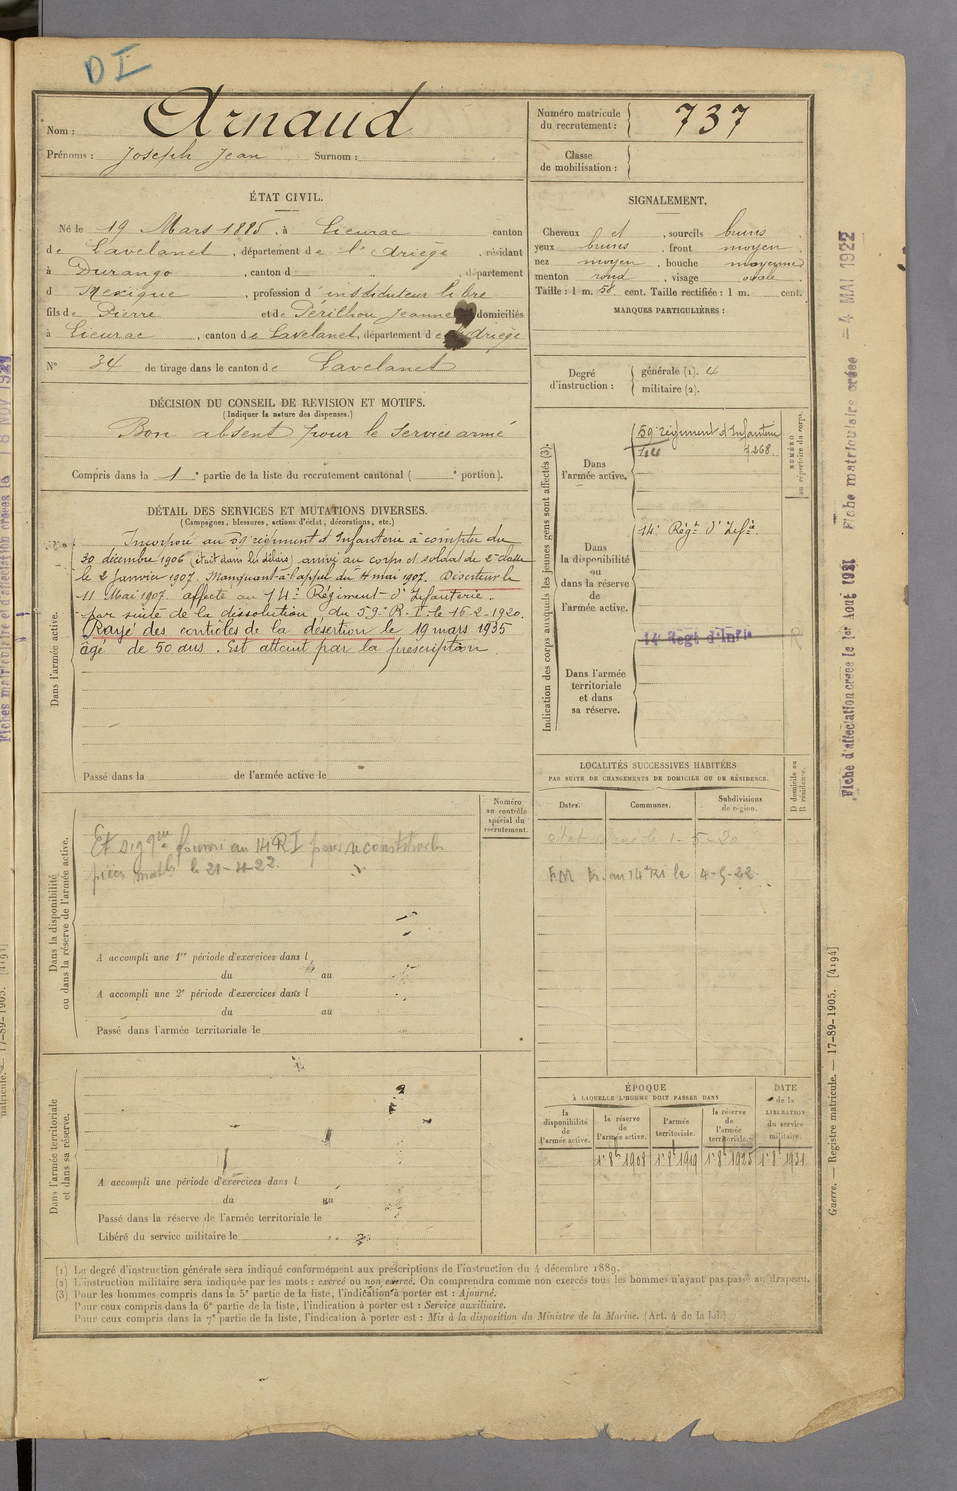 D I
Nom : Arnaud
Prénoms : Joseph Jean Surnom :
Numéro matricule du recrutement : 737
Classe de mobilisation :
ÉTAT CIVIL.
Né le 19 Mars 1885, à Lieurac canton
de Lavelanet, département de l'Ariège, résidant
à Durango, canton d , département
d Mexique, profession d'instituteur libre
fils de Pierre et de Périlhou Jeanne domiciliés
à Lieurac, canton de Lavelanet, département de l'Ariège
N° 34 de tirage dans le canton de Lavelanet
SIGNALEMENT.
Cheveux et , sourcils bruns ,
yeux bruns , front moyen ,
nez moyen , bouche moyenne
menton rond , visage ovale
Taille : 1 m. 58 cent. Taille rectifiée : 1 m. cent.
MARQUES PARTICULIÈRES :
Degré d'instruction : générale (1). 4
militaire (2).
DÉCISION DU CONSEIL DE REVISION ET MOTIFS.
(Indiquer la nature des dispenses.)
Bon absent pour le service armé
Compris dans la 1e partie de la liste du recrutement cantonal ( e portion).
DÉTAIL DES SERVICES ET MUTATIONS DIVERSES.
(Campagnes, blessures, actions d'éclat, décorations, etc.)
Dans l'armée active.
Incorporé au 59e régiment d'Infanterie à compter du
30 décembre 1906 (était dans les délais) arrivé au corps et soldat de 2e classe
le 2 janvier 1907. Manquant à l'appel du 4 mai 1907. Déserteur le
11 Mai 1907. affecté au 14e Régiment d'Infanterie.
par suite de la dissolution du 59e R.I. le 15-2-1920.
Rayé des contrôles de la désertion le 19 mars 1935
âgé de 50 ans. Est atteint par la prescription.
Passé dans la de l'armée active le
Indication des corps auxquels les jeunes gens sont affectés (3).
NUMÉRO au répertoire du corps.
Dans l'armée active.
59e régiment d'Infanterie
7268
Dans la disponibilité ou dans la réserve de l'armée active.
14e Régt d'Infie
Dans l'armée territoriale et dans sa réserve.
14e Regt d'Infie
R
LOCALITÉS SUCCESSIVES HABITÉES
PAR SUITE DE CHANGEMENTS DE DOMICILE OU DE RÉSIDENCE.
D domicile ou R résidence.
Dates. Communes. Subdivisions de région.
le 1-5-20
au 14e RI le 4-5-22
Dans la disponibilité ou dans la réserve de l'armée active.
Numéro au contrôle spécial du recrutement.
fourni au 14 RI pour
le 21-4-22.
A accompli une 1re période d'exercices dans l
du au
A accompli une 2e période d'exercices dans l
du au
Passé dans l'armée territoriale le
Dans l'armée territoriale et dans sa réserve.
A accompli une période d'exercices dans l
du au
Passé dans la réserve de l'armée territoriale le
Libéré du service militaire le
ÉPOQUE
À LAQUELLE L'HOMME DOIT PASSER DANS
la disponibilité de l'armée active.
la réserve de l'armée active.
l'armée territoriale.
la réserve de l'armée territoriale.
DATE de la LIBÉRATION du service militaire.
1r 8b 1908 1r 8b 1919 1r 8b 1925 1r 8b 1931
(1) Le degré d'instruction générale sera indiqué conformément aux prescriptions de l'instruction du 4 décembre 1889.
(2) L'instruction militaire sera indiquée par les mots : exercé ou non exercé. On comprendra comme non exercés tous les hommes n'ayant pas passé au drapeau.
(3) Pour les hommes compris dans la 5e partie de la liste, l'indication à porter est : Ajourné.
Pour ceux compris dans la 6e partie de la liste, l'indication à porter est : Service auxiliaire.
Pour ceux compris dans la 7e partie de la liste, l'indication à porter est : Mis à la disposition du Ministre de la Marine. (Art. 4 de la loi.)
Fiche matriculaire créée 4 MAI 1922
Fiche d'affectation créée le 1er Aout 1921
Guerre. — Registre matricule. — 17-89-1905. [4194]